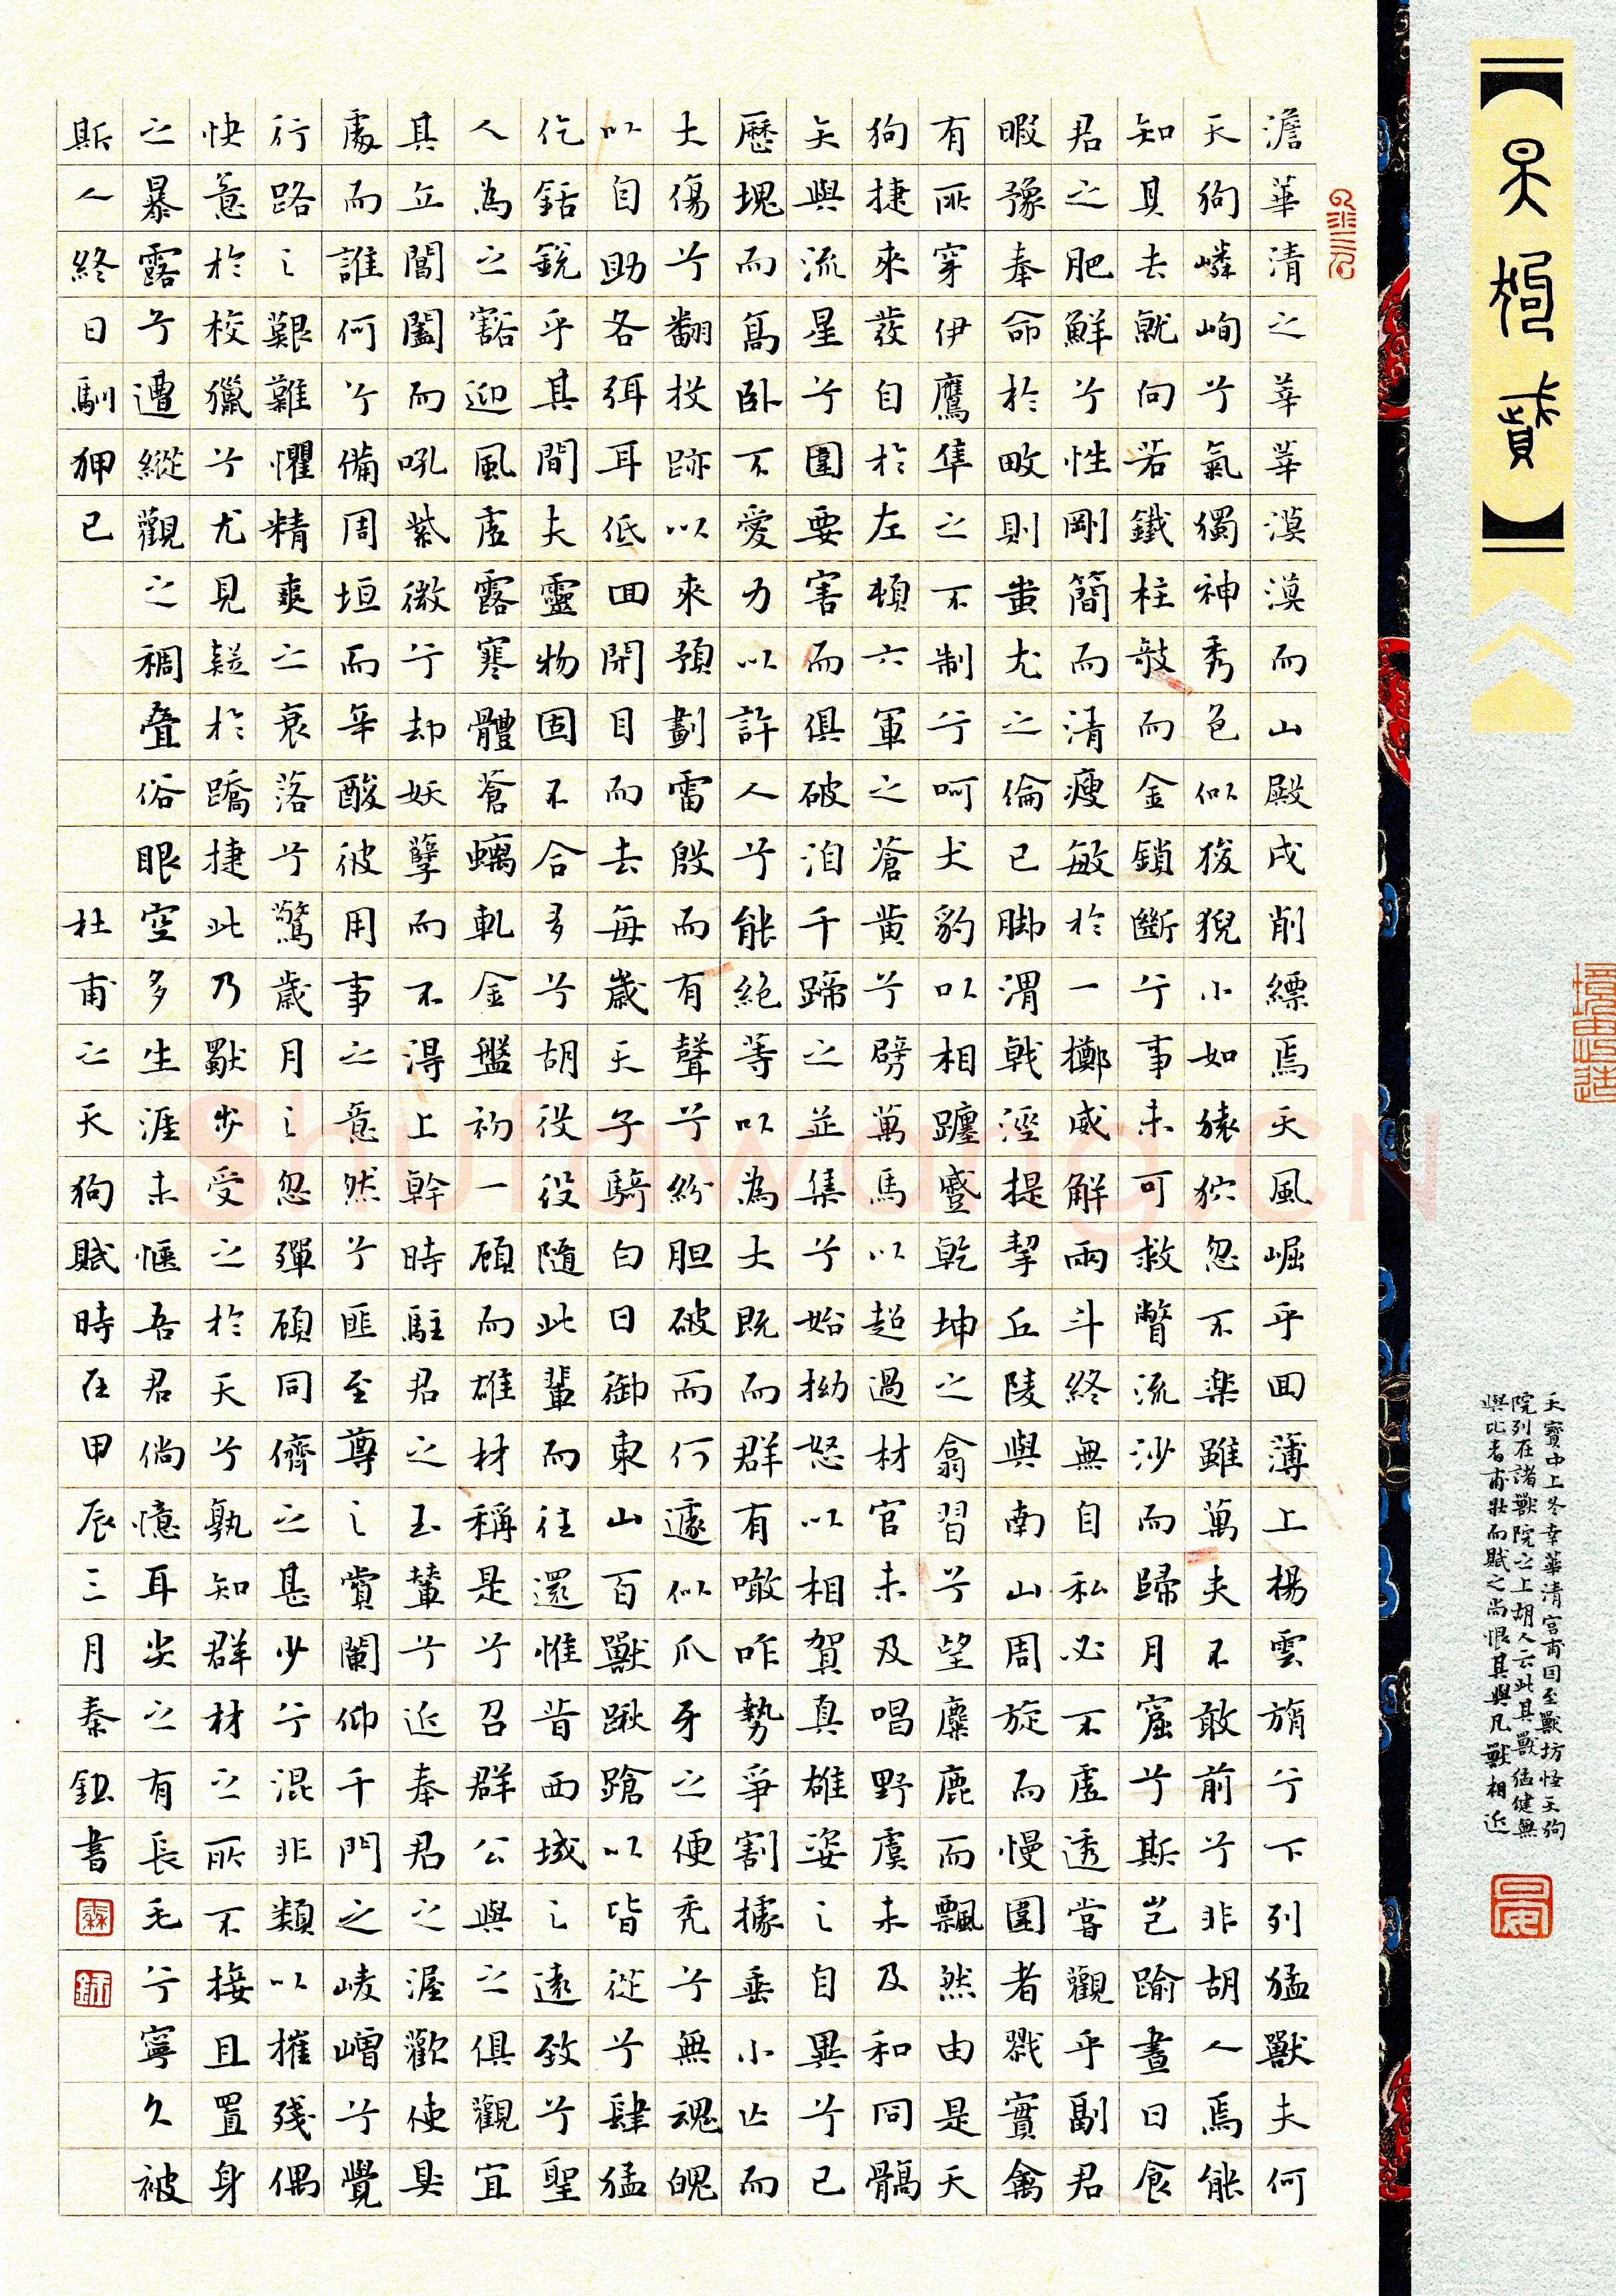 【天狗賦】
天寶中上冬幸華清宮甫因至獸坊怪天狗
院列在諸獸院之上胡人云此其獸猛健無
與比者甫壯而賦之尚恨其與凡獸相近
澹華清之莘莘漠漠而山殿戌削縹焉天風崛乎回薄上楊雲旓兮下列猛獸夫何
天狗嶙峋兮氣獨神秀色似狻猊小如猿狖忽不樂雖萬夫不敢前兮非胡人焉能
知其去就向若鐵柱敧而金鎖斷兮事未可救瞥流沙而歸月窟兮斯豈踰晝日食
君之肥鮮兮性剛簡而清瘦敏於一擲威解兩斗終無自私必不虛透嘗觀乎副君
暇豫奉命於畋則蚩尤之倫已脚渭戟涇提挈丘陵與南山周旋而慢圍者戮實禽
有所穿伊鷹隼之不制兮呵犬豹以相躔蹙乾坤之翕習兮望麋鹿而飄然由是天
狗捷來發自於左頓六軍之蒼黄兮劈萬馬以超過材官未及唱野虞未及和同髇
矢與流星兮圍要害而俱破洎千蹄之並集兮始拗怒以相賀真雄姿之自異兮已
歷塊而高臥不愛力以許人兮能絶等以為大既而群有噉咋勢爭割據垂小亡而
大傷兮翻投跡以來預劃雷殷而有聲兮紛胆破而何遽似爪牙之便秃兮無魂魄
以自助各弭耳低回閉目而去每歲天子騎白日御東山百獸蹴蹌以皆從兮肆猛
仡銛銳乎其間夫靈物固不合多兮胡役役隨此輩而往還惟昔西域之遠致兮聖
人為之豁迎風虛露寒體蒼螭軋金盤初一顧而雄材稱是兮召群公與之俱觀宜
其立閶闔而吼紫微兮却妖孽而不得上幹時駐君之玉輦兮近奉君之渥歡使臭
處而誰何兮備周垣而辛酸彼用事之意然兮匪至尊之賞闌仰千門之崚嶒兮覺
行路之艱難懼精爽之衰落兮驚歲月之忽殫顧同儕之甚少兮混非類以摧殘偶
快意於校獵兮尤見疑於蹻捷此乃獨步受之於天兮孰知群材之所不接且置身
之暴露兮遭縱觀之稠疊俗眼空多生涯未愜吾君倘憶耳尖之有長毛兮寧久被
斯人終日馴狎已 杜甫之天狗賦時在甲辰三月秦鉦書
Shufawang.CN